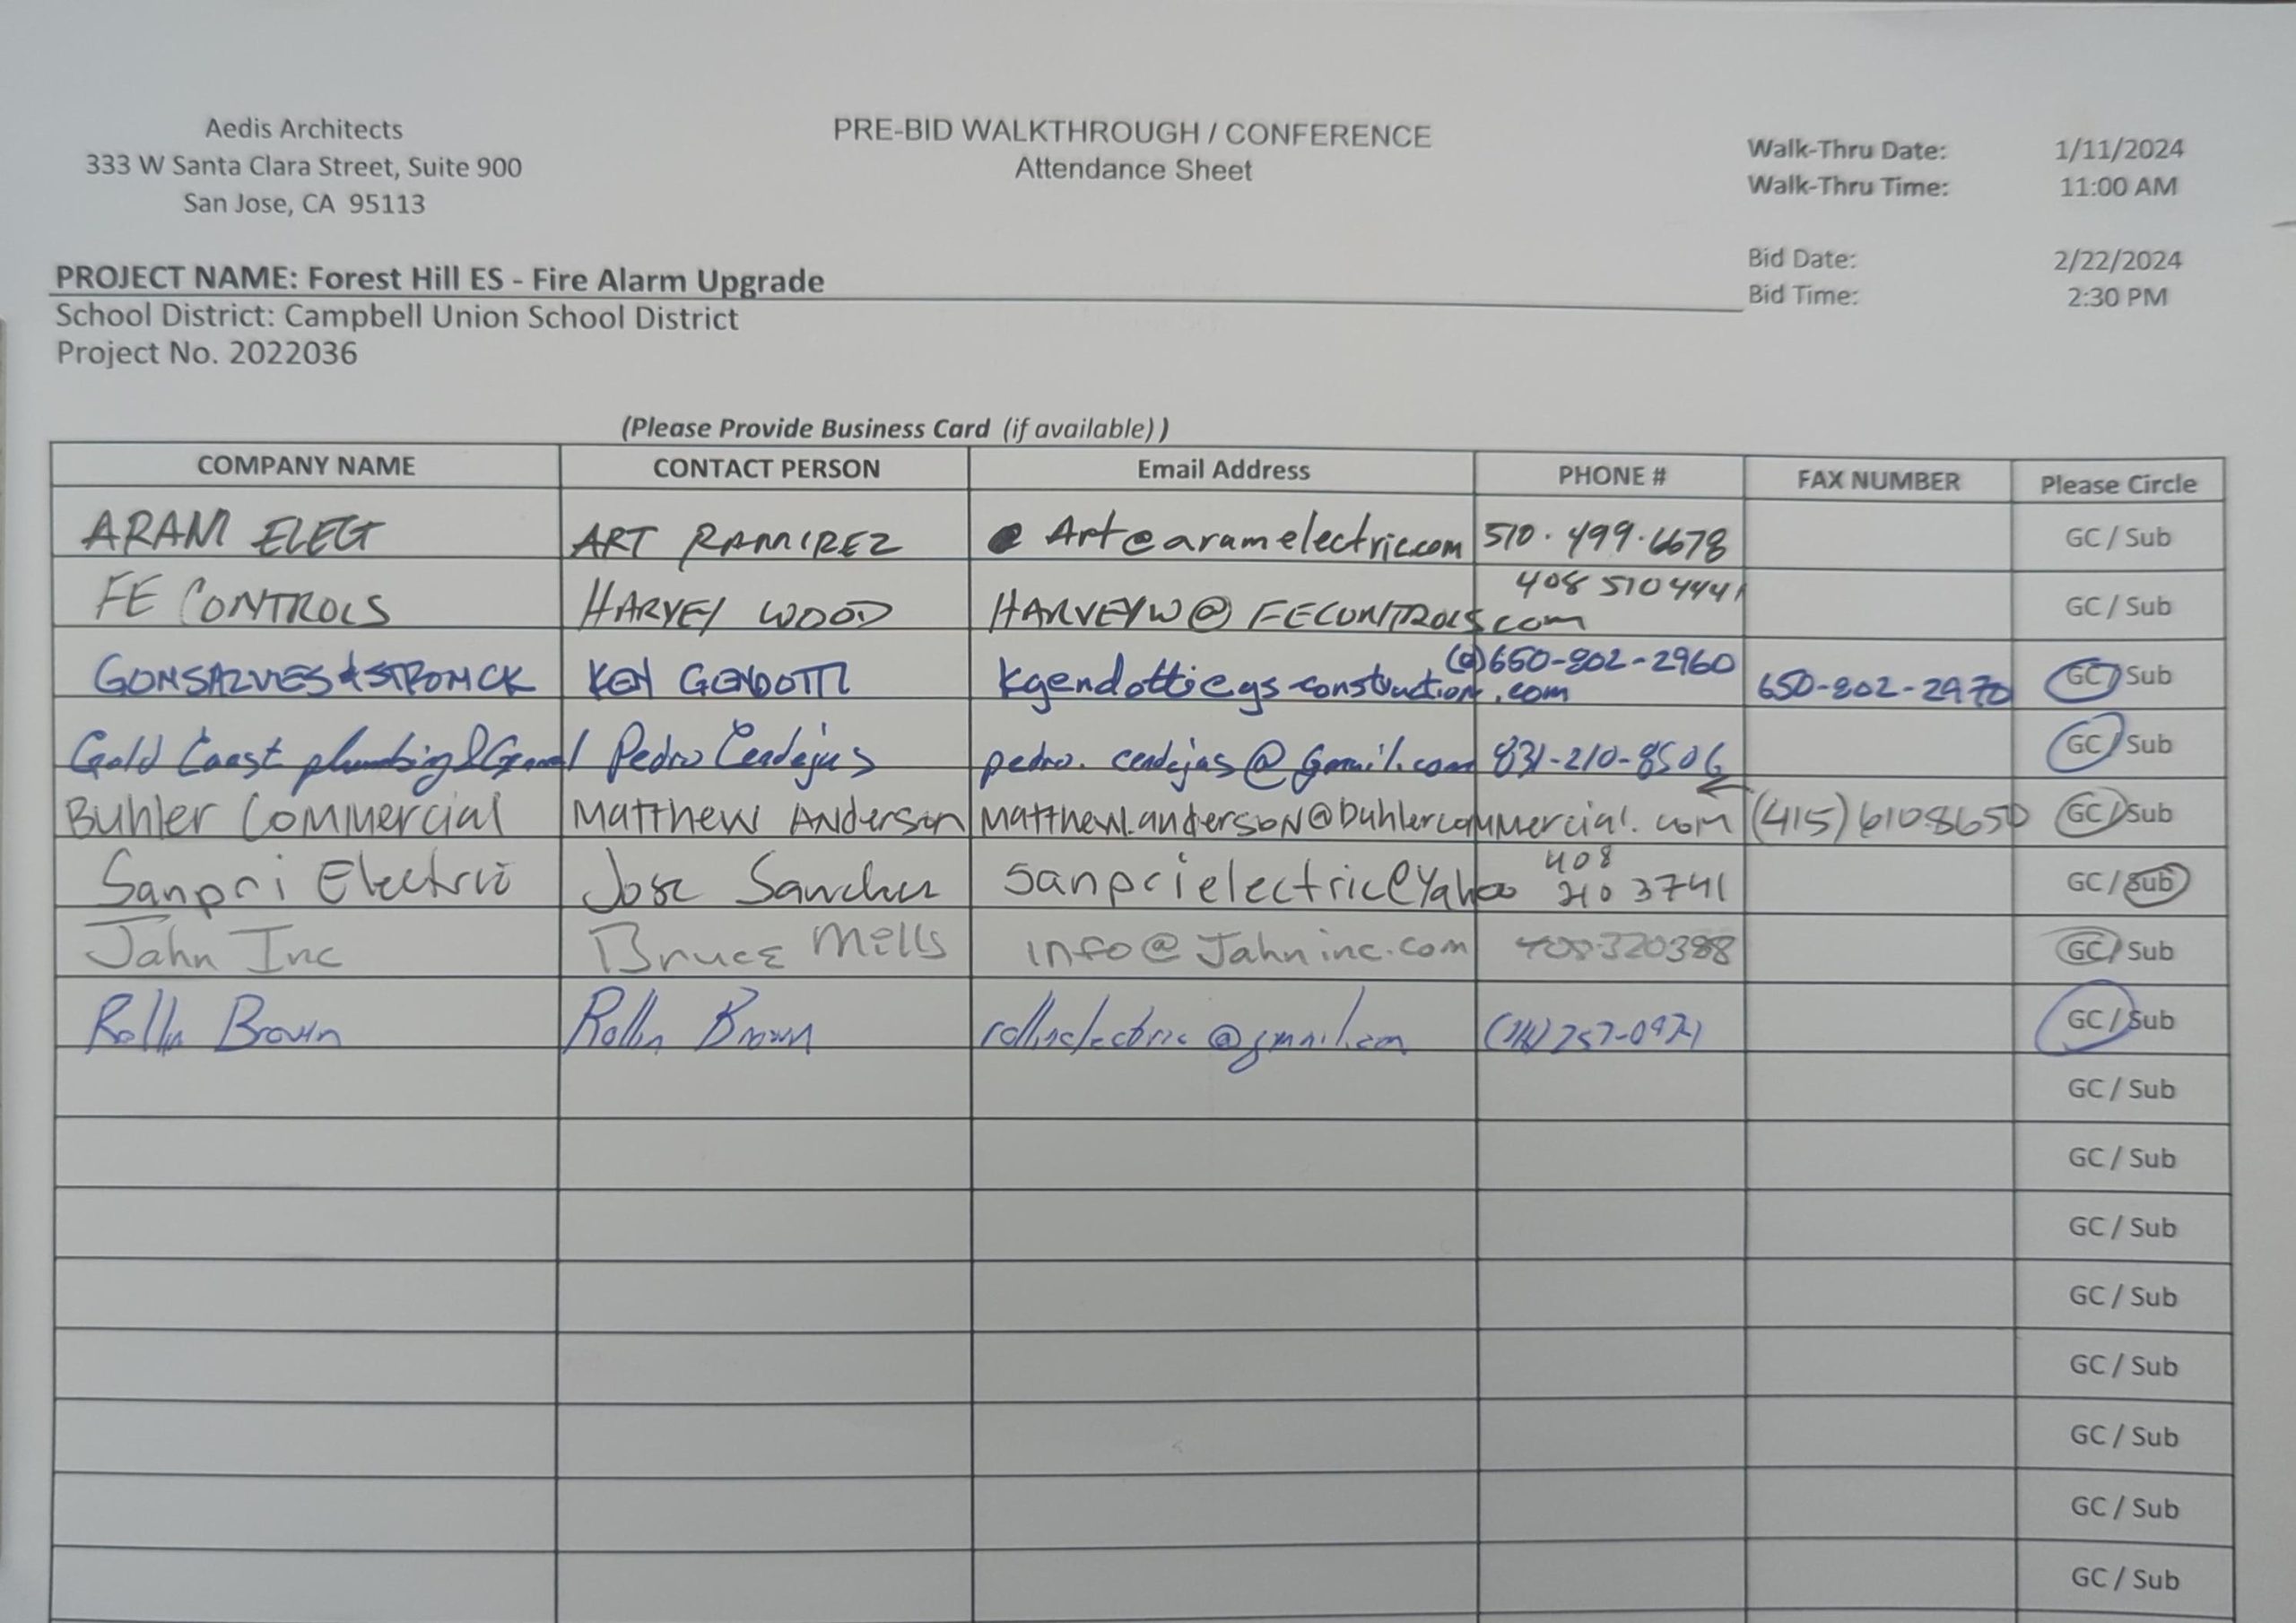 Aedis Architects
333 W Santa Clara Street, Suite 900
San Jose, CA 95113
PRE-BID WALKTHROUGH / CONFERENCE
Attendance Sheet
Walk-Thru Date: 1/11/2024
Walk-Thru Time: 11:00 AM
Bid Date: 2/22/2024
Bid Time: 2:30 PM
PROJECT NAME: Forest Hill ES - Fire Alarm Upgrade
School District: Campbell Union School District
Project No. 2022036
(Please Provide Business Card (if available) )
COMPANY NAME CONTACT PERSON Email Address PHONE # FAX NUMBER Please Circle
ARAM ELECT ART RAMIREZ Art@aramelectric.com 510.499.6678 GC / Sub
FE CONTROLS HARVEY WOOD HARVEYW@FECONTROLS.com 408 510 4441 GC / Sub
GONSALVES & STRONCK KEN GENDOTTI kgendotti@gs-construction.com (o) 650-802-2960 650-802-2970 GC / Sub
Gold Coast plumbing & General Pedro pedro.cendejas@gmail.com 831-210-8506 GC / Sub
Buhler Commercial Matthew Anderson matthew.anderson@buhlercommercial.com (415) 6108650 GC / Sub
Sanpri Electric Jose Sanchez sanprielectric@yahoo 408 210 3741 GC / Sub
Jahn Inc Bruce Mills info@Jahninc.com GC / Sub
Rollin Brown Rollin Brown rollinelectric@gmail.com GC / Sub
GC / Sub
GC / Sub
GC / Sub
GC / Sub
GC / Sub
GC / Sub
GC / Sub
GC / Sub